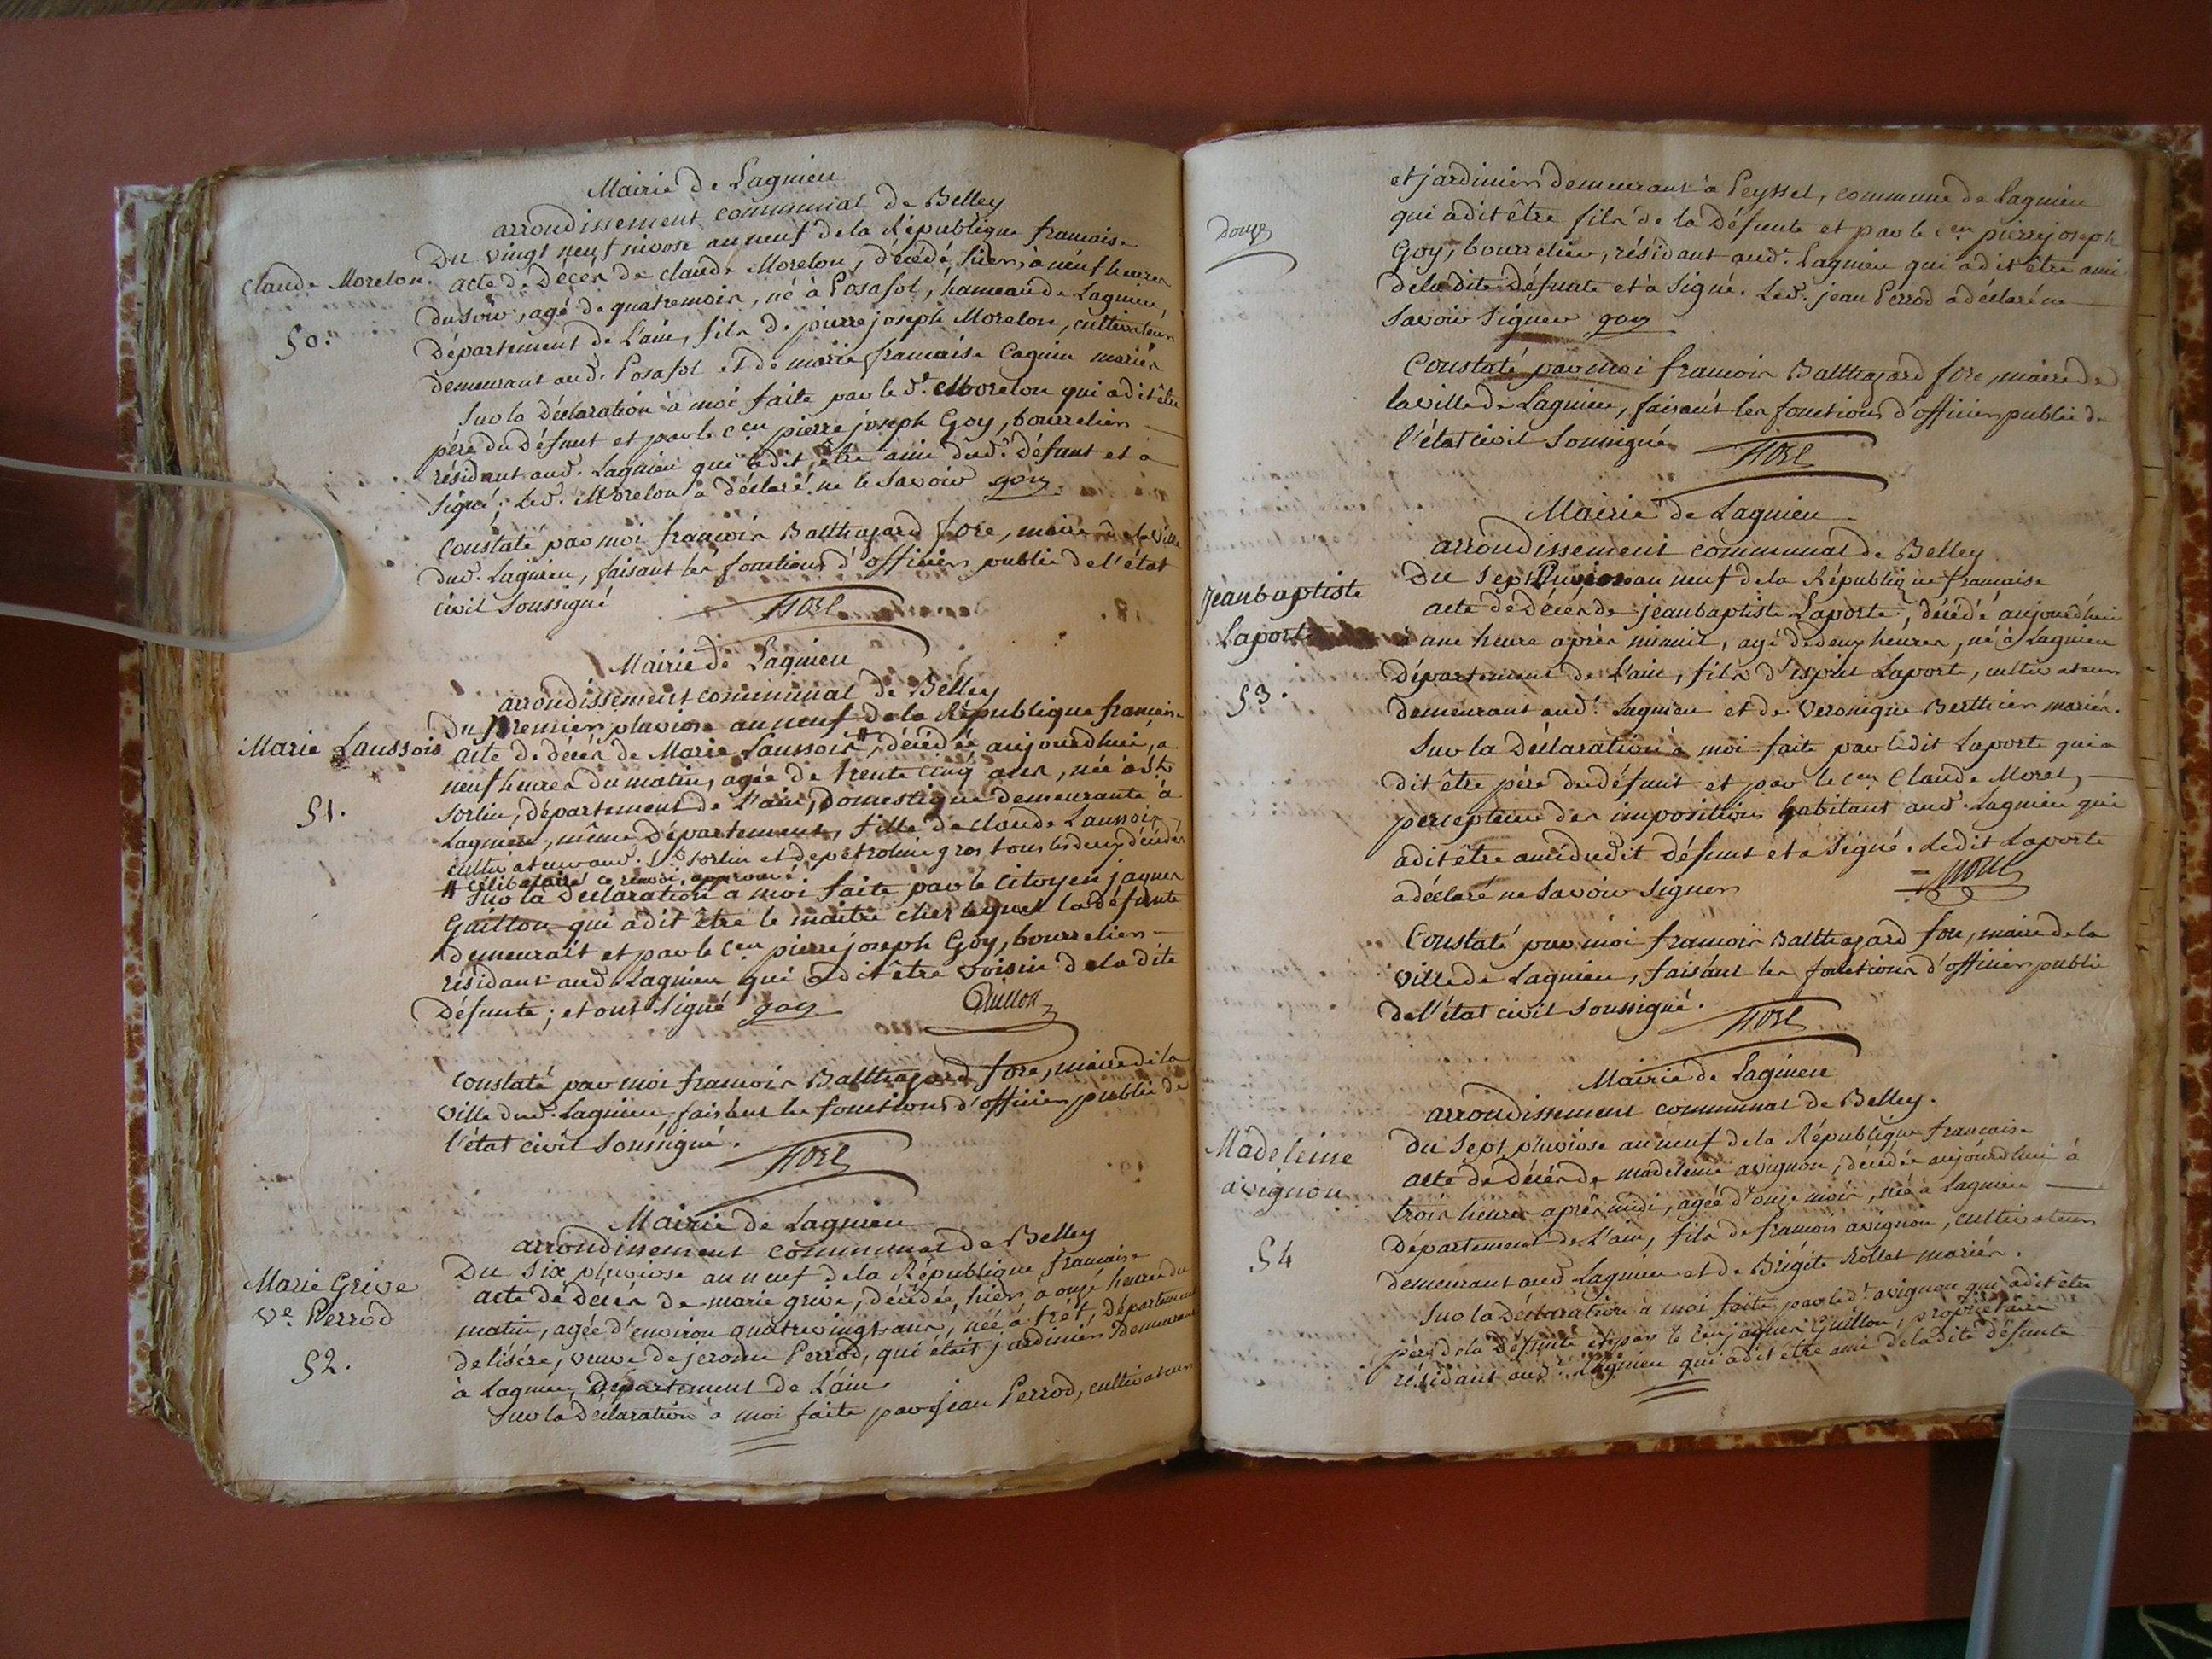 Mairie de Lagnieu
arrondissement communal de Belley
Du vingt neuf nivose an neuf de la République francaise
Claude Morelon. acte de décès de claude Morelon, décédé hier, à neuf heures
du soir, agé de quatre mois, né à Posafol, hameau de Lagnieu,
50.
Département de l'ain, fils de pierre joseph Morelon, cultivateur
demeurant aud. Posafol et de marie francaise Cagnin mariés
Sur la déclaration à moi faite par le dt. Morelon qui a dit être
père du défunt et par le cen pierre joseph Goy, bourrelier
résidant aud. Lagnieu qui a dit être ami dud. Défunt et a
signé; Led. Morelon a déclaré ne le savoir goy
Constaté par moi francois Balthazard fore, maire de la ville
dud. Lagnieu, faisant les fonctions d'officier public de l'état
civil soussigné FORE
Mairie de Lagnieu
arrondissement communal de Belley
Du premier pluviose an neuf de la République francaise
Marie Laussois acte de décès de Marie Laussois #, décédée aujourdhui, a
neuf heures du matin, agée de trente cinq ans, née à st.
51.
Sorlin, département de l'ain, Domestique demeurante à
Lagnieu, même département, fille de claude Laussois,
cultivateur aud. St. Sorlin et de petroline gros tous les deux décédés
# célibataire ce renvoi approuvé
Sur la déclaration a moi faite par le citoyen jaques
Guillon qui a dit être le maître chez lequel la défunte
demeurait et par le cen pierre joseph Goy, bourrelier
résidant aud. Lagnieu qui a dit être voisin de la dite
Défunte; et ont signé goy Guillon
Constaté par moi francois Balthazard fore, maire de la
ville dud. Lagnieu, faisant les fonctions d'officier public de
l'état civil soussigné. FORE
Mairie de Lagnieu
arrondissement communal de Belley
Du six pluviose an neuf de la République francaise
Marie Grive
acte de décès de marie grive, décédée, hier, à onze heures du
Ve. Perrod
matin, agée d'environ quatrevingt ans, née à trêt, département
de l'isére, veuve de jerome Perrod, qui était jardinier demeurant
52.
à Lagnieu, Département de l'ain
Sur la déclaration à moi faite par jean Perrod, cultivateur
Douze
et jardinier demeurant à Peysset, commune de Lagnieu
qui a dit être fils de la Défunte et par le cen pierre joseph
Goy, bourrelier, résidant aud. Lagnieu qui a dit être ami
de la dite Défunte et à signé. Led. jean Perrod a déclaré ne
savoir signer goy
Constaté par moi francois Balthazard fore, maire de
la ville de Lagnieu, faisant les fonctions d'officier public de
l'état civil soussigné FORE
Mairie de Lagnieu
arrondissement communal de Belley
Du sept pluviose an neuf de la République francaise
Jean baptiste
acte de décès de jean baptiste Laporte, décédé aujourdhui
Laporte
à une heure après minuit, agé de deux heures, né à Lagnieu
Département de l'ain, fils d'esprit Laporte, cultivateur
53.
demeurant aud. Lagnieu et de Veronique Berthier mariés.
Sur la Déclaration à moi faite par ledit Laporte qui a
dit être père du défunt et par le cen Claude Morel,
percepteur des impositions habitant aud. Lagnieu qui
a dit être ami dudit défunt et a signé. Ledit Laporte
a déclaré ne savoir signer MOREL
Constaté par moi francois Balthazard fore, maire de la
ville de Lagnieu, faisant les fonctions d'officier public
de l'état civil soussigné. FORE
Mairie de Lagnieu
arrondissement communal de Belley.
Du sept pluviose an neuf de la République francaise
Madeleine
acte de décès de madeleine avignon, décédée aujourdhui à
avignon
trois heures après midi, agée d'onze mois, née à Lagnieu
Département de l'ain, fils de francois avignon, cultivateur
54
demeurant aud. Lagnieu et de Brigite Rollet mariés.
Sur la déclaration à moi faite par led. avignon qui a dit être
père de la défunte et par le cen jaques Guillon, propriétaire
résidant aud. Lagnieu qui a dit être ami de la dite défunte